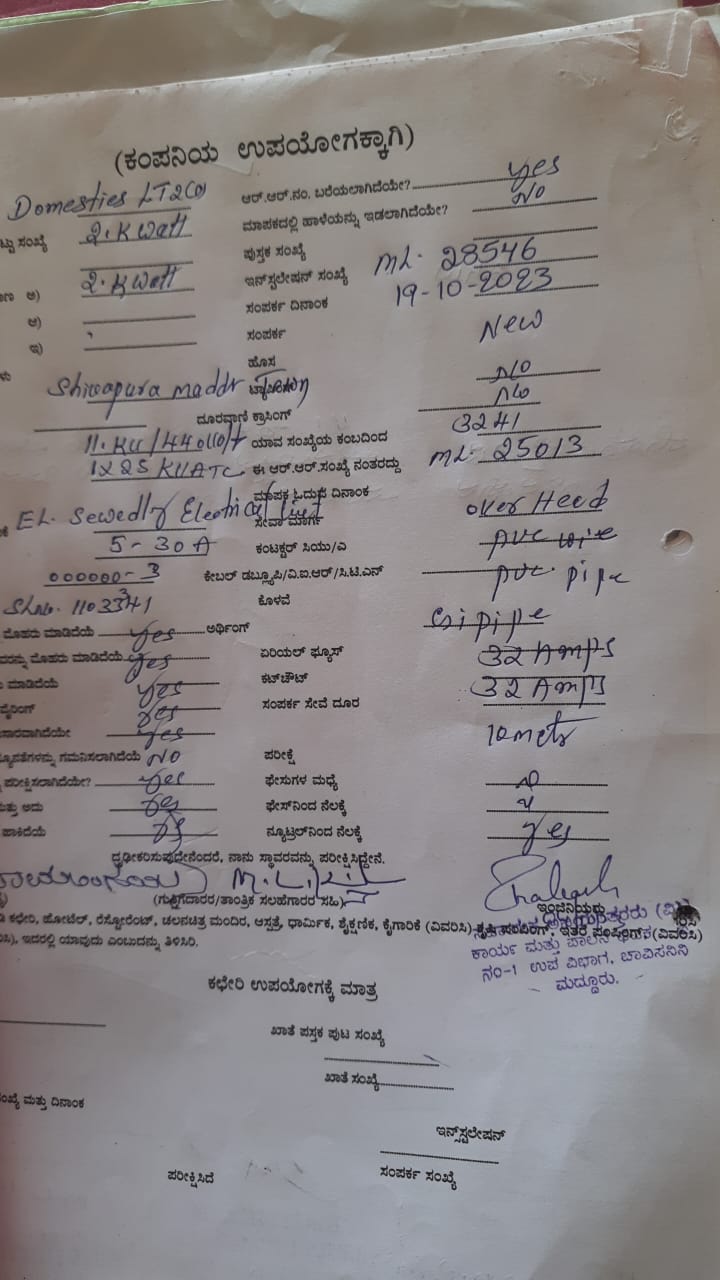 (ಕಂಪನಿಯ ಉಪಯೋಗಕ್ಕಾಗಿ)
Domesties LT2(a) ಆರ್.ಆರ್.ನಂ. ಬರೆಯಲಾಗಿದೆಯೇ? yes
ಮಾಪಕದಲ್ಲಿ ಹಾಳೆಯನ್ನು ಇಡಲಾಗಿದೆಯೇ? NO
ಟ್ಟು ಸಂಖ್ಯೆ 2.KWatt ಪುಸ್ತಕ ಸಂಖ್ಯೆ
ಅ) 2.KWatt ಇನ್‌ಸ್ಟಲೇಷನ್ ಸಂಖ್ಯೆ ML. 28546
ಆ) ಸಂಪರ್ಕ ದಿನಾಂಕ 19-10-2023
ಇ) ಸಂಪರ್ಕ New
ಹೊಸ
Shivapura maddur NO
ದೂರವಾಣಿ ಕ್ರಾಸಿಂಗ್ NO
11.KV/440volt ಯಾವ ಸಂಖ್ಯೆಯ ಕಂಬದಿಂದ 3241
1X25 KVATC ಈ ಆರ್.ಆರ್.ಸಂಖ್ಯೆ ನಂತರದ್ದು ML. 25013
ಮಾಪಕ ಓದುವ ದಿನಾಂಕ
EL. Sewedly Electrical ಸೇವಾ ಮಾರ್ಗ over Head
5-30A ಕಂಟಕ್ಟರ್ ಸಿಯು/ಎ pvc wire
000000-3 ಕೇಬಲ್ ಡಬ್ಲ್ಯೂಪಿ/ವಿ.ಐ.ಆರ್/ಸಿ.ಟಿ.ಎನ್ pvc. pipe
Slno. 1103341 ಕೊಳವೆ
ಮೊಹರು ಮಾಡಿದೆಯೆ yes ಅರ್ಥಿಂಗ್ Gi pipe
ಮೊಹರು ಮಾಡಿದೆಯೆ yes ಏರಿಯಲ್ ಫ್ಯೂಸ್ 32 Amps
ಮಾಡಿದೆಯೆ yes ಕಟ್‌ಔಟ್ 32 Amps
ವೈರಿಂಗ್ yes ಸಂಪರ್ಕ ಸೇವೆ ದೂರ
ಸಾರವಾಗಿದೆಯೇ yes 10 metr
ಗಮನಿಸಲಾಗಿದೆಯೆ NO ಪರೀಕ್ಷೆ
ಪರೀಕ್ಷಿಸಲಾಗಿದೆಯೇ? yes ಫೇಸುಗಳ ಮಧ್ಯೆ
ಮತ್ತು ಅದು yes ಫೇಸ್‌ನಿಂದ ನೆಲಕ್ಕೆ
ಹಾಕಿದೆಯೆ yes ನ್ಯೂಟ್ರಲ್‌ನಿಂದ ನೆಲಕ್ಕೆ yes
ದೃಢೀಕರಿಸುವುದೇನೆಂದರೆ, ನಾನು ಸ್ಥಾವರವನ್ನು ಪರೀಕ್ಷಿಸಿದ್ದೇನೆ.
(ಗುತ್ತಿಗೆದಾರರ/ತಾಂತ್ರಿಕ ಸಲಹೆಗಾರರ ಸಹಿ) ಇಂಜಿನಿಯರು
ಕಛೇರಿ, ಹೋಟೆಲ್, ರೆಸ್ಟೋರೆಂಟ್, ಚಲನಚಿತ್ರ ಮಂದಿರ, ಆಸ್ಪತ್ರೆ, ಧಾರ್ಮಿಕ, ಶೈಕ್ಷಣಿಕ, ಕೈಗಾರಿಕೆ (ವಿವರಿಸಿ) ಕೃಷಿ ಪಂಪಿಂಗ್, ಇತರೆ ಪಂಪಿಂಗ್ (ವಿವರಿಸಿ)
ಇದರಲ್ಲಿ ಯಾವುದು ಎಂಬುದನ್ನು ತಿಳಿಸಿರಿ.
ಕಾರ್ಯ ಮತ್ತು ಪಾಲನೆ
ನಂ-1 ಉಪ ವಿಭಾಗ, ಚಾವಿಸನಿನಿ
ಮದ್ದೂರು.
ಕಛೇರಿ ಉಪಯೋಗಕ್ಕೆ ಮಾತ್ರ
ಖಾತೆ ಪುಸ್ತಕ ಪುಟ ಸಂಖ್ಯೆ
ಖಾತೆ ಸಂಖ್ಯೆ
ಸಂಖ್ಯೆ ಮತ್ತು ದಿನಾಂಕ
ಇನ್ಸ್‌ಟಲೇಷನ್
ಪರೀಕ್ಷಿಸಿದೆ ಸಂಪರ್ಕ ಸಂಖ್ಯೆ